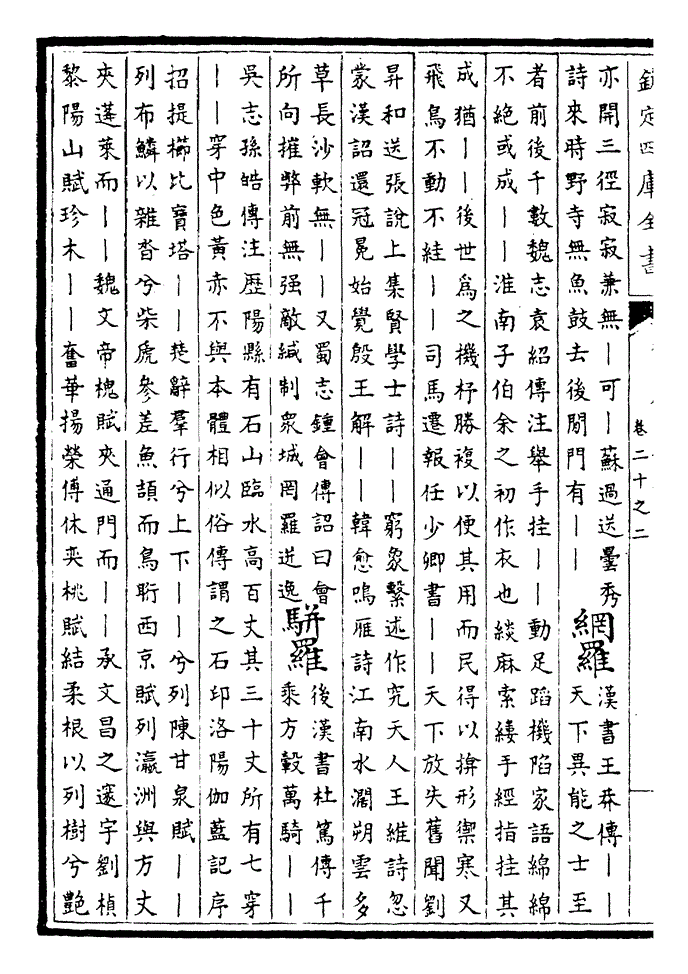 欽定四庫全書
卷二十之二
亦開三徑寂寂兼無｜可｜蘇過送曇秀
詩來時野寺無魚鼓去後閒門有｜｜
網羅
漢書王莽傳｜｜
天下異能之士至
者前後千數魏志袁紹傳注舉手挂｜｜動足蹈機陷家語綿綿
不絶或成｜｜淮南子伯余之初作衣也緂麻索縷手經指挂其
成猶｜｜後世為之機杼勝複以便其用而民得以揜形禦寒又
飛鳥不動不絓｜｜司馬遷報任少卿書｜｜天下放失舊聞劉
昇和送張說上集賢學士詩｜｜窮象繫述作究天人王維詩忽
蒙漢詔還冠冕始覺殷王解｜｜韓愈鳴雁詩江南水濶朔雲多
草長沙軟無｜｜又蜀志鍾會傳詔曰會
所向摧弊前無强敵緘制衆城罔羅迸逸
駢羅
後漢書杜篤傳千
乘方轂萬騎｜｜
吳志孫皓傳注歷陽縣有石山臨水高百丈其三十丈所有七穿
｜｜穿中色黃赤不與本體相似俗傳謂之石印洛陽伽藍記序
招提櫛比寶塔｜｜楚辭羣行兮上下｜｜兮列陳甘泉賦｜｜
列布鱗以雜沓兮柴虒參差魚頡而鳥䀪西京賦列瀛洲與方丈
夾蓬萊而｜｜魏文帝槐賦夾通門而｜｜承文昌之邃宇劉楨
黎陽山賦珍木｜｜奮華揚榮傅休奕桃賦結柔根以列樹兮艷